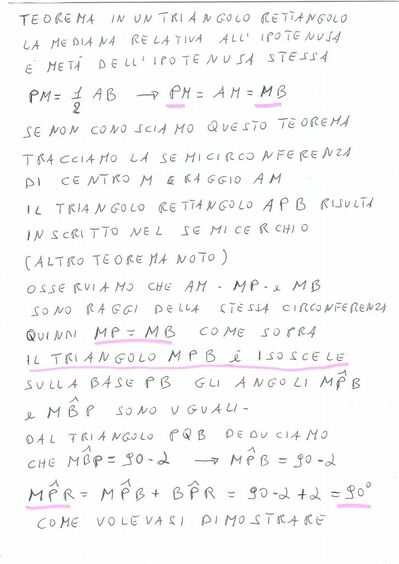 TEOREMA IN UN TRIANGOLO RETTANGOLO
LA MEDIANA RELATIVA ALL'IPOTENUSA
É METÁ DELL'IPOTENUSA STESSA
PM = 1/2 AB → PM = AM = MB
SE NON CONOSCIAMO QUESTO TEOREMA
TRACCIAMO LA SEMICIRCONFERENZA
DI CENTRO M E RAGGIO AM
IL TRIANGOLO RETTANGOLO APB RISULTA
INSCRITTO NEL SEMICERCHIO
(ALTRO TEOREMA NOTO)
OSSERVIAMO CHE AM - MP - e MB
SONO RAGGI DELLA STESSA CIRCONFERENZA
QUINDI MP = MB COME SOPRA
IL TRIANGOLO MPB é ISOSCELE
SULLA BASE PB GLI ANGOLI MP̂B
e MB̂P SONO UGUALI-
DAL TRIANGOLO PQB DEDUCIAMO
CHE MB̂P = 90-2 → MP̂B = 90-2
MP̂R = MP̂B + BP̂R = 90-2+2 = 90°
COME VOLEVASI DIMOSTRARE